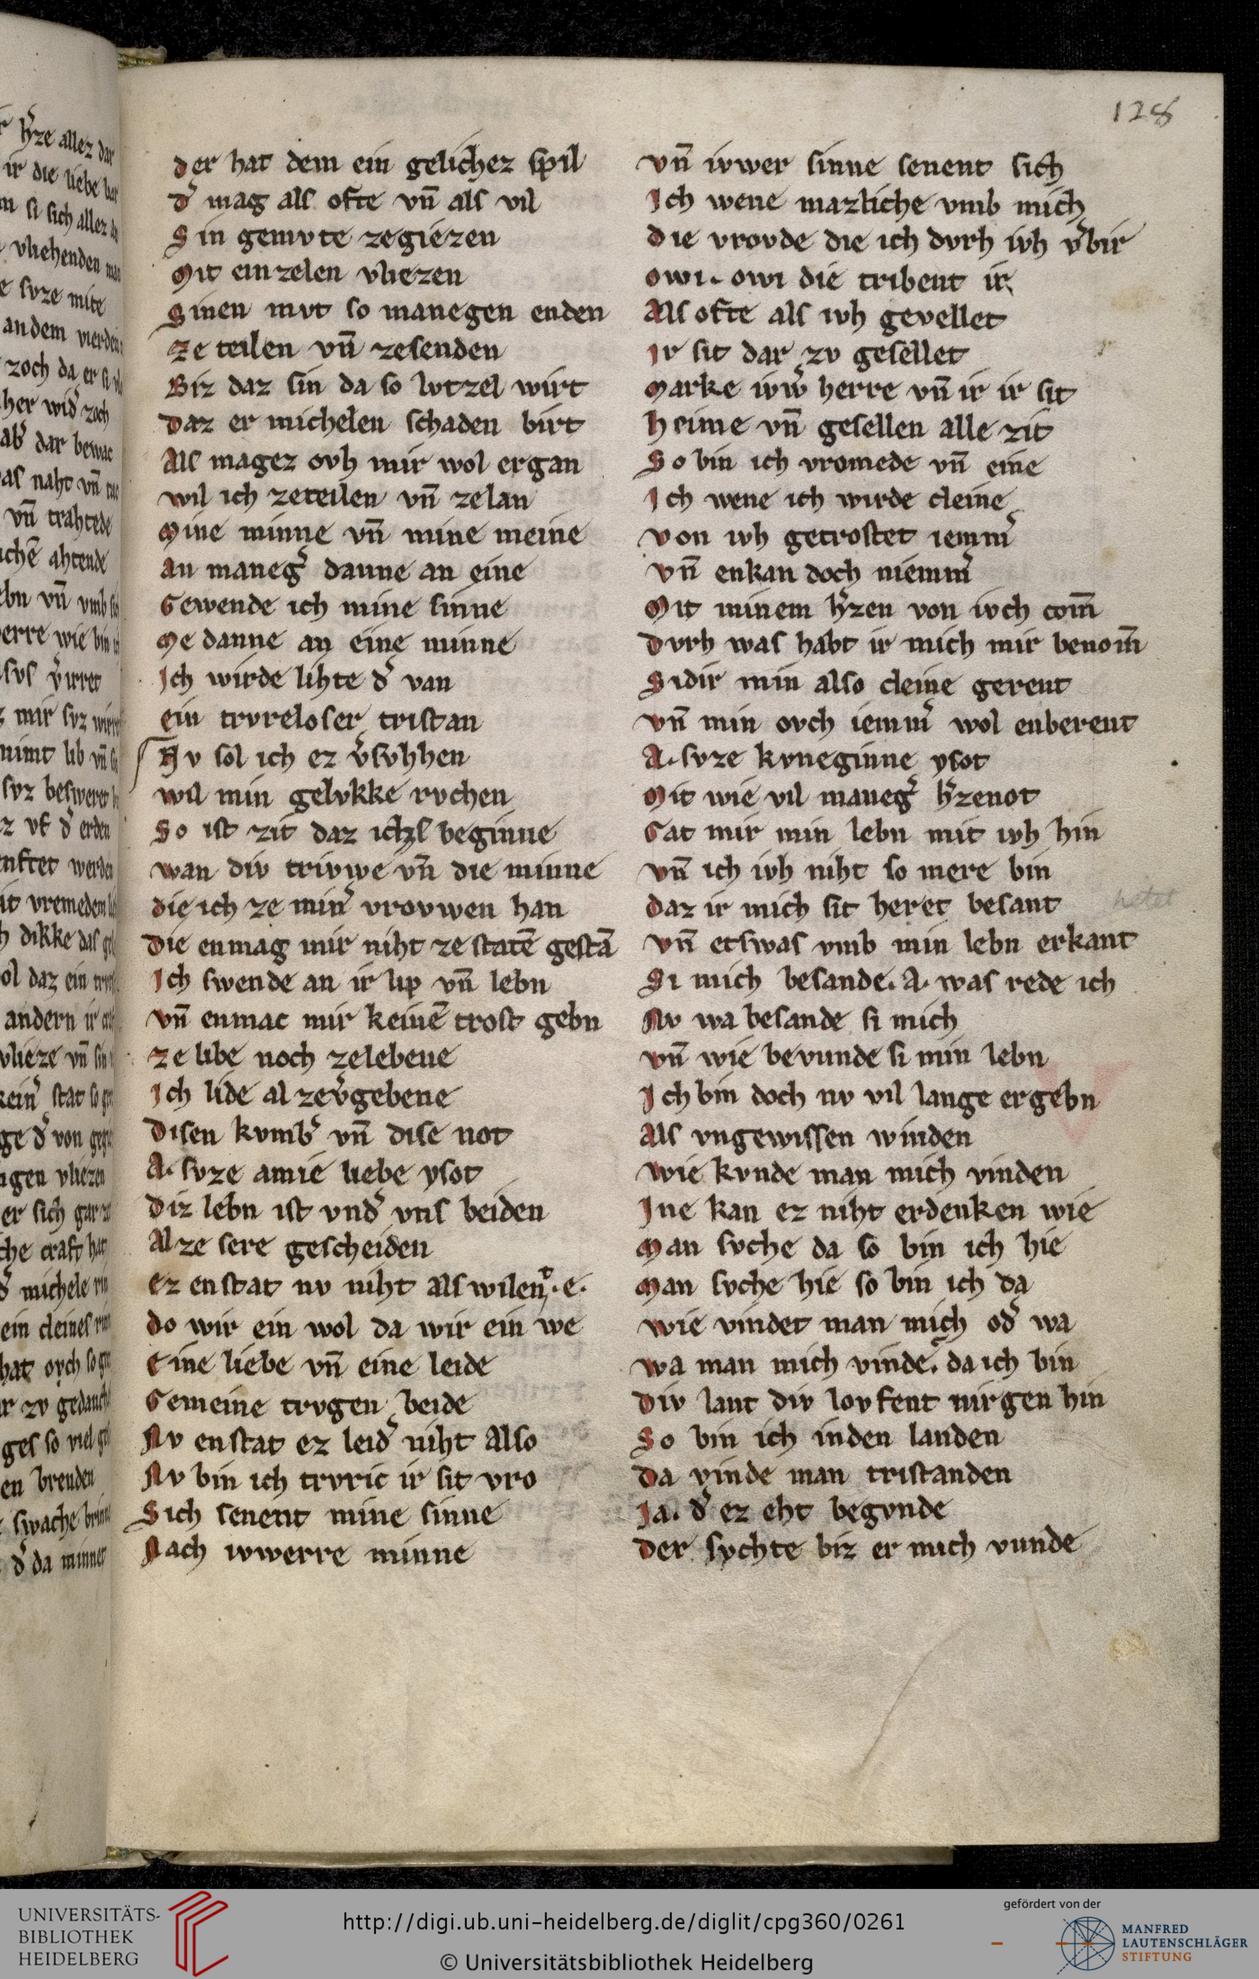 128
der hat dem ein gelichez spil
d᷑ mag als ofte vn̄ als vil
Sin gemvte zegiezen
Mit einzelen vliezen
Sinen mvt so manegen enden
Ze teilen vn̄ zesenden
Biz daz sin da so lvtzel wirt
Daz er michelen schaden birt
Als magez ovh mir wol ergan
wil ich zeteilen vn̄ zelan
Mine minne vn̄ mine meine
An maneg᷑ danne an eine
Gewende ich mine sinne
Me danne an eine minne
Ich wirde lihte d᷑ van
ein trvreloser tristan
Nv sol ich ez v᷑svhhen
wil min gelvkke rvchen
So ist zit daz ichzs beginne
wan div trivwe vn̄ die minne
die ich ze min᷑ vrovwen han
Die enmag mir niht ze statē gestā
Ich swende an ir lip vn̄ lebn
vn̄ enmac mir keinē trost gebn
ze libe noch zelebene
Ich lide al zev᷑gebene
Disen kvmb᷑ vn̄ dise not
A. svze amie liebe ysot
Diz lebn ist vnd᷑ vns beiden
Al ze sere gescheiden
ez enstat nv niht als wilen .e.
do wir ein wol da wir ein we
Eine liebe vn̄ eine leide
Gemeine trvgen beide
Nv enstat ez leid᷑ niht also
Nv bin ich trvric ir sit vro
Sich senent mine sinne
Nach iwwerre minne
vn̄ iwer sinne senent sich
Ich wene mazliche vmb mich
Die vrovde die ich dvrh ivh v᷑bir
owi. owi die tribent ir
Als ofte als ivh gevellet
Ir sit dar zv gesellet
Marke iww᷑ herre vn̄ ir ir sit
Heime vn̄ gesellen alle zit
So bin ich vromede vn̄ eine
Ich wene ich wirde cleine
Von ivh getrostet iemm᷑
vn̄ enkan doch niemm᷑
Mit minem h᷑zen von ivch com̄
Dvrh was habt ir mich mir benom̄
Sidir min also cleine gerent
vn̄ min ovch iemm᷑ wol enberent
A. svze kvneginne ysot
Mit wie vil maneg᷑ h᷑zenot
Gat mir min lebn mit ivh hin
vn̄ ich ivh niht so mere bin
daz ir mich sit heret besant
vn̄ etswas vmb min lebn erkant
Si mich besande. A. was rede ich
Nv wa besande si mich
vn̄ wie bevunde si min lebn
Ich bin doch nv vil lange ergebn
Als vngewissen winden
wie kvnde man mich vinden
Ine kan ez niht erdenken wie
Man svche da so bin ich hie
Man svche hie so bin ich da
wie vindet man mich od᷑ wa
wa man mich vinde. da ich bin
Div lant div lovfent nirgen hin
So bin ich inden landen
Da vinde man tristanden
Ja. d᷑ ez eht begvnde
Der svchte biz er mich vunde
UNIVERSITÄTS-
BIBLIOTHEK
HEIDELBERG
http://digi.ub.uni-heidelberg.de/diglit/cpg360/0261
© Universitätsbibliothek Heidelberg
gefördert von der
MANFRED
LAUTENSCHLÄGER
STIFTUNG